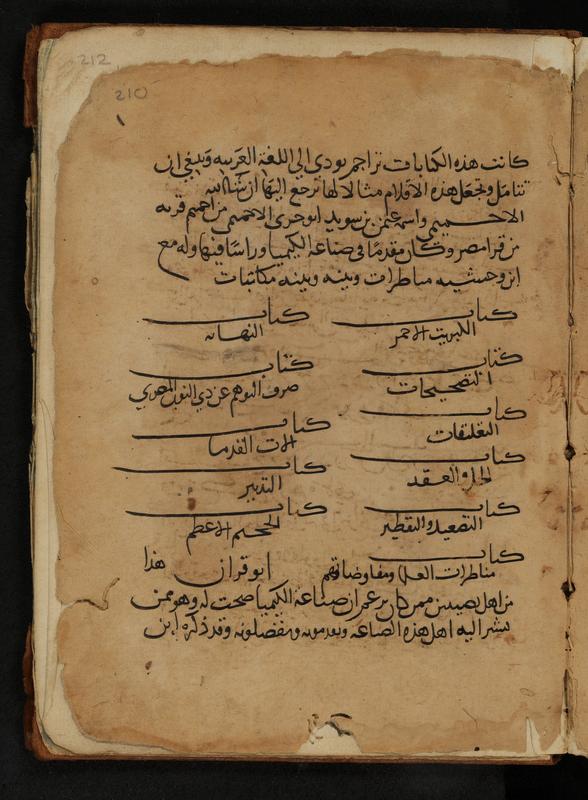 212
210
كانت هذه الكتابات تراجم يودي الي اللغة العربيه وينبغي ان
نتامل ونجعل هذه الاقلام مثالا لها نرجع اليها ان شاالله
الاخميمي واسمه عثمن بن سويد ابو حرى الاخميمي من اخميم قريه
من قرا مصر وكان مقدما في صناعة الكيميا وراسا فيها وله مع
ابن وحشيه مناظرات وبينه وبينه مكاتبات
كتاب الكبريت الاحمر
كتاب
كتاب التصحيحات
كتاب صرف التوهم عن ذي النون المصري
كتاب التعليقات
كتاب الات القدما
كتاب الحل والعقد
كتاب التدبير
كتاب التصعيد والتقطير
كتاب الجحيم الاعظم
كتاب مناظرات العلما ومفاوضاتهم
ابو قران هذا
من اهل نصيبين ممن كان يزعم ان صناعة الكيميا صحت له وهو ممن
يشير اليه اهل هذه الصناعه ويقدمونه ويفضلونه وقد ذكره ابن